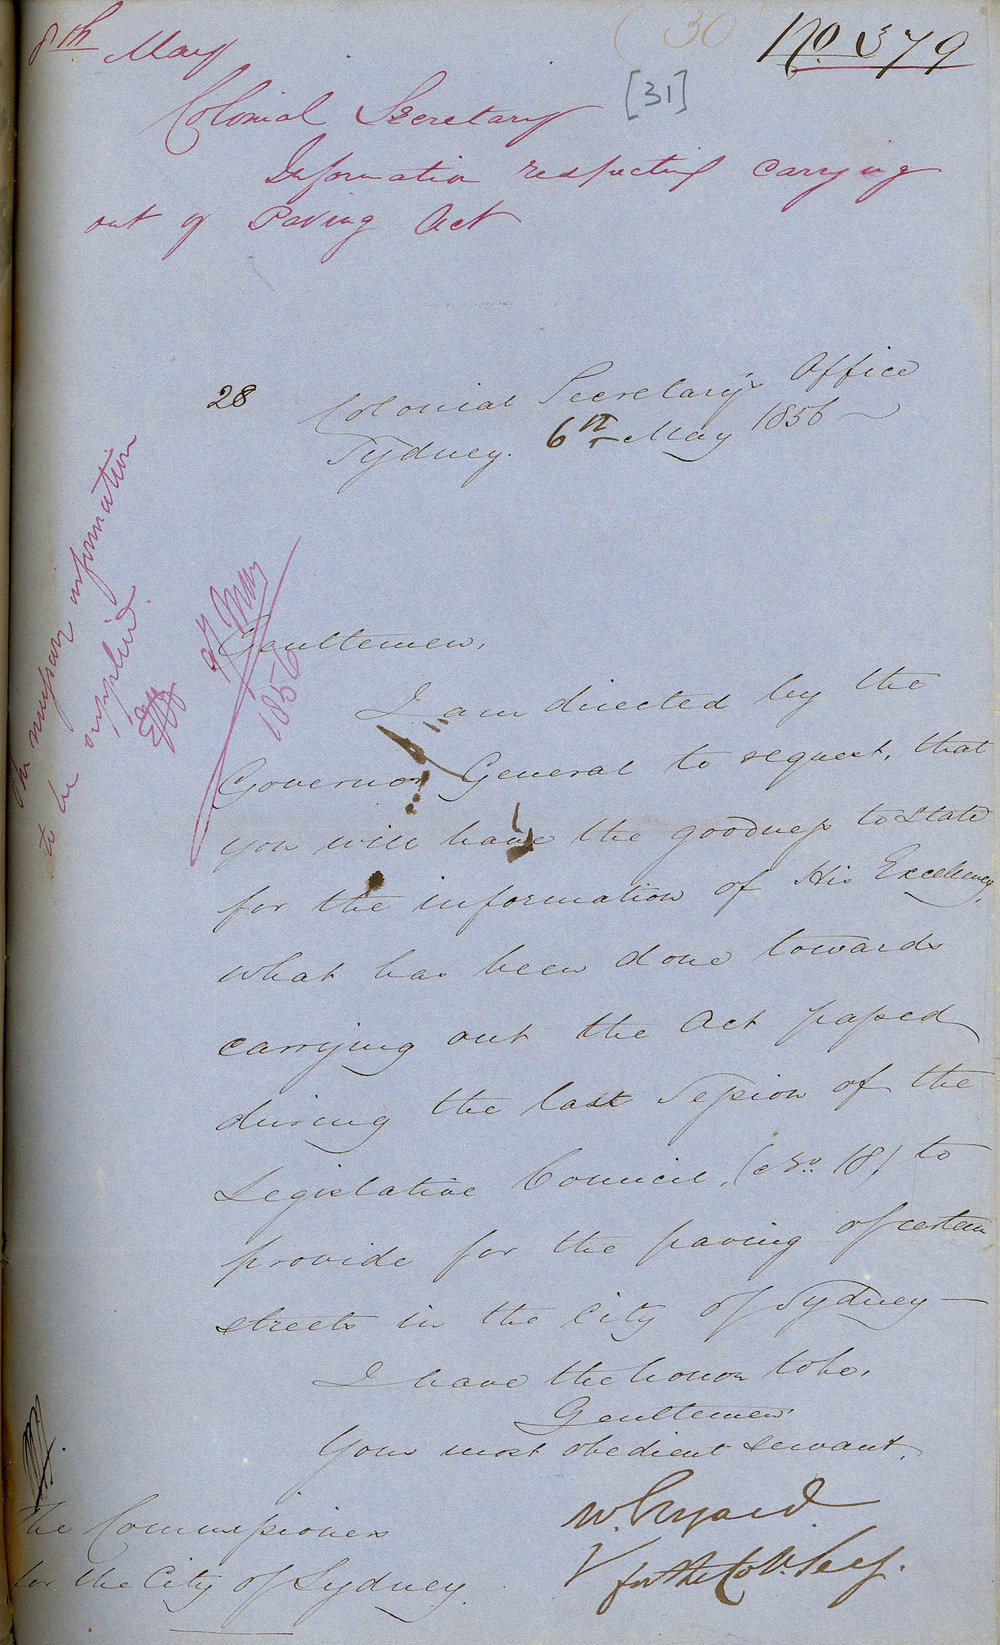 8th May
(30)
No. 379
[31]
Colonial Secretary
Information respecting carrying
out of Paving Act
28
Colonial Secretary's Office
Sydney. 6th May 1856
The necessary information
to be supplied.
9 May
1856
Gentlemen,
I am directed by the
Governor General to request, that
you will have the goodness to state
for the information of His Excellency,
what has been done towards
carrying out the Act passed
during the last Session of the
Legislative Council, (No. 18) to
provide for the paving of certain
streets in the City of Sydney—
I have the honor to be,
Gentlemen
Your most obedient servant,
W.
for the Col. Secy.
The Commissioners
for the City of Sydney.